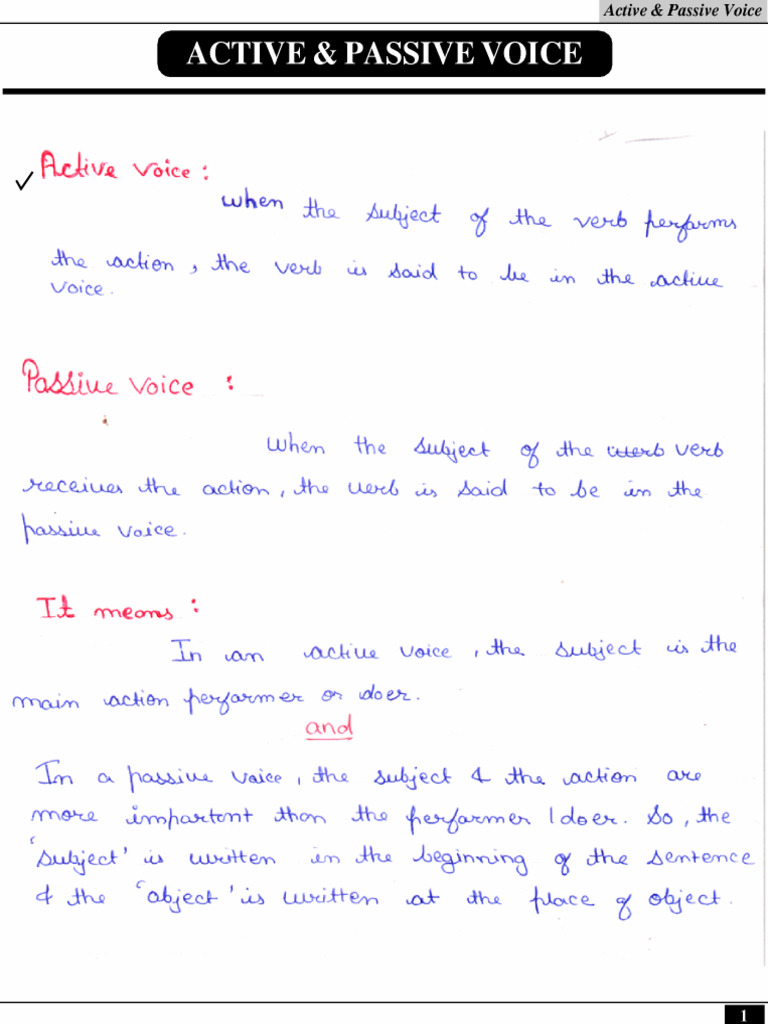 Active & Passive Voice
ACTIVE & PASSIVE VOICE
Active voice :
when the subject of the verb performs
the action, the verb is said to be in the active
voice.
Passive voice :
When the subject of the verb
receives the action, the verb is said to be in the
passive voice.
It means :
In an active voice, the subject is the
main action performer or doer.
and
In a passive voice, the subject & the action are
more important than the performer / doer. So, the
'subject' is written in the beginning of the sentence
& the 'object' is written at the place of object.
1